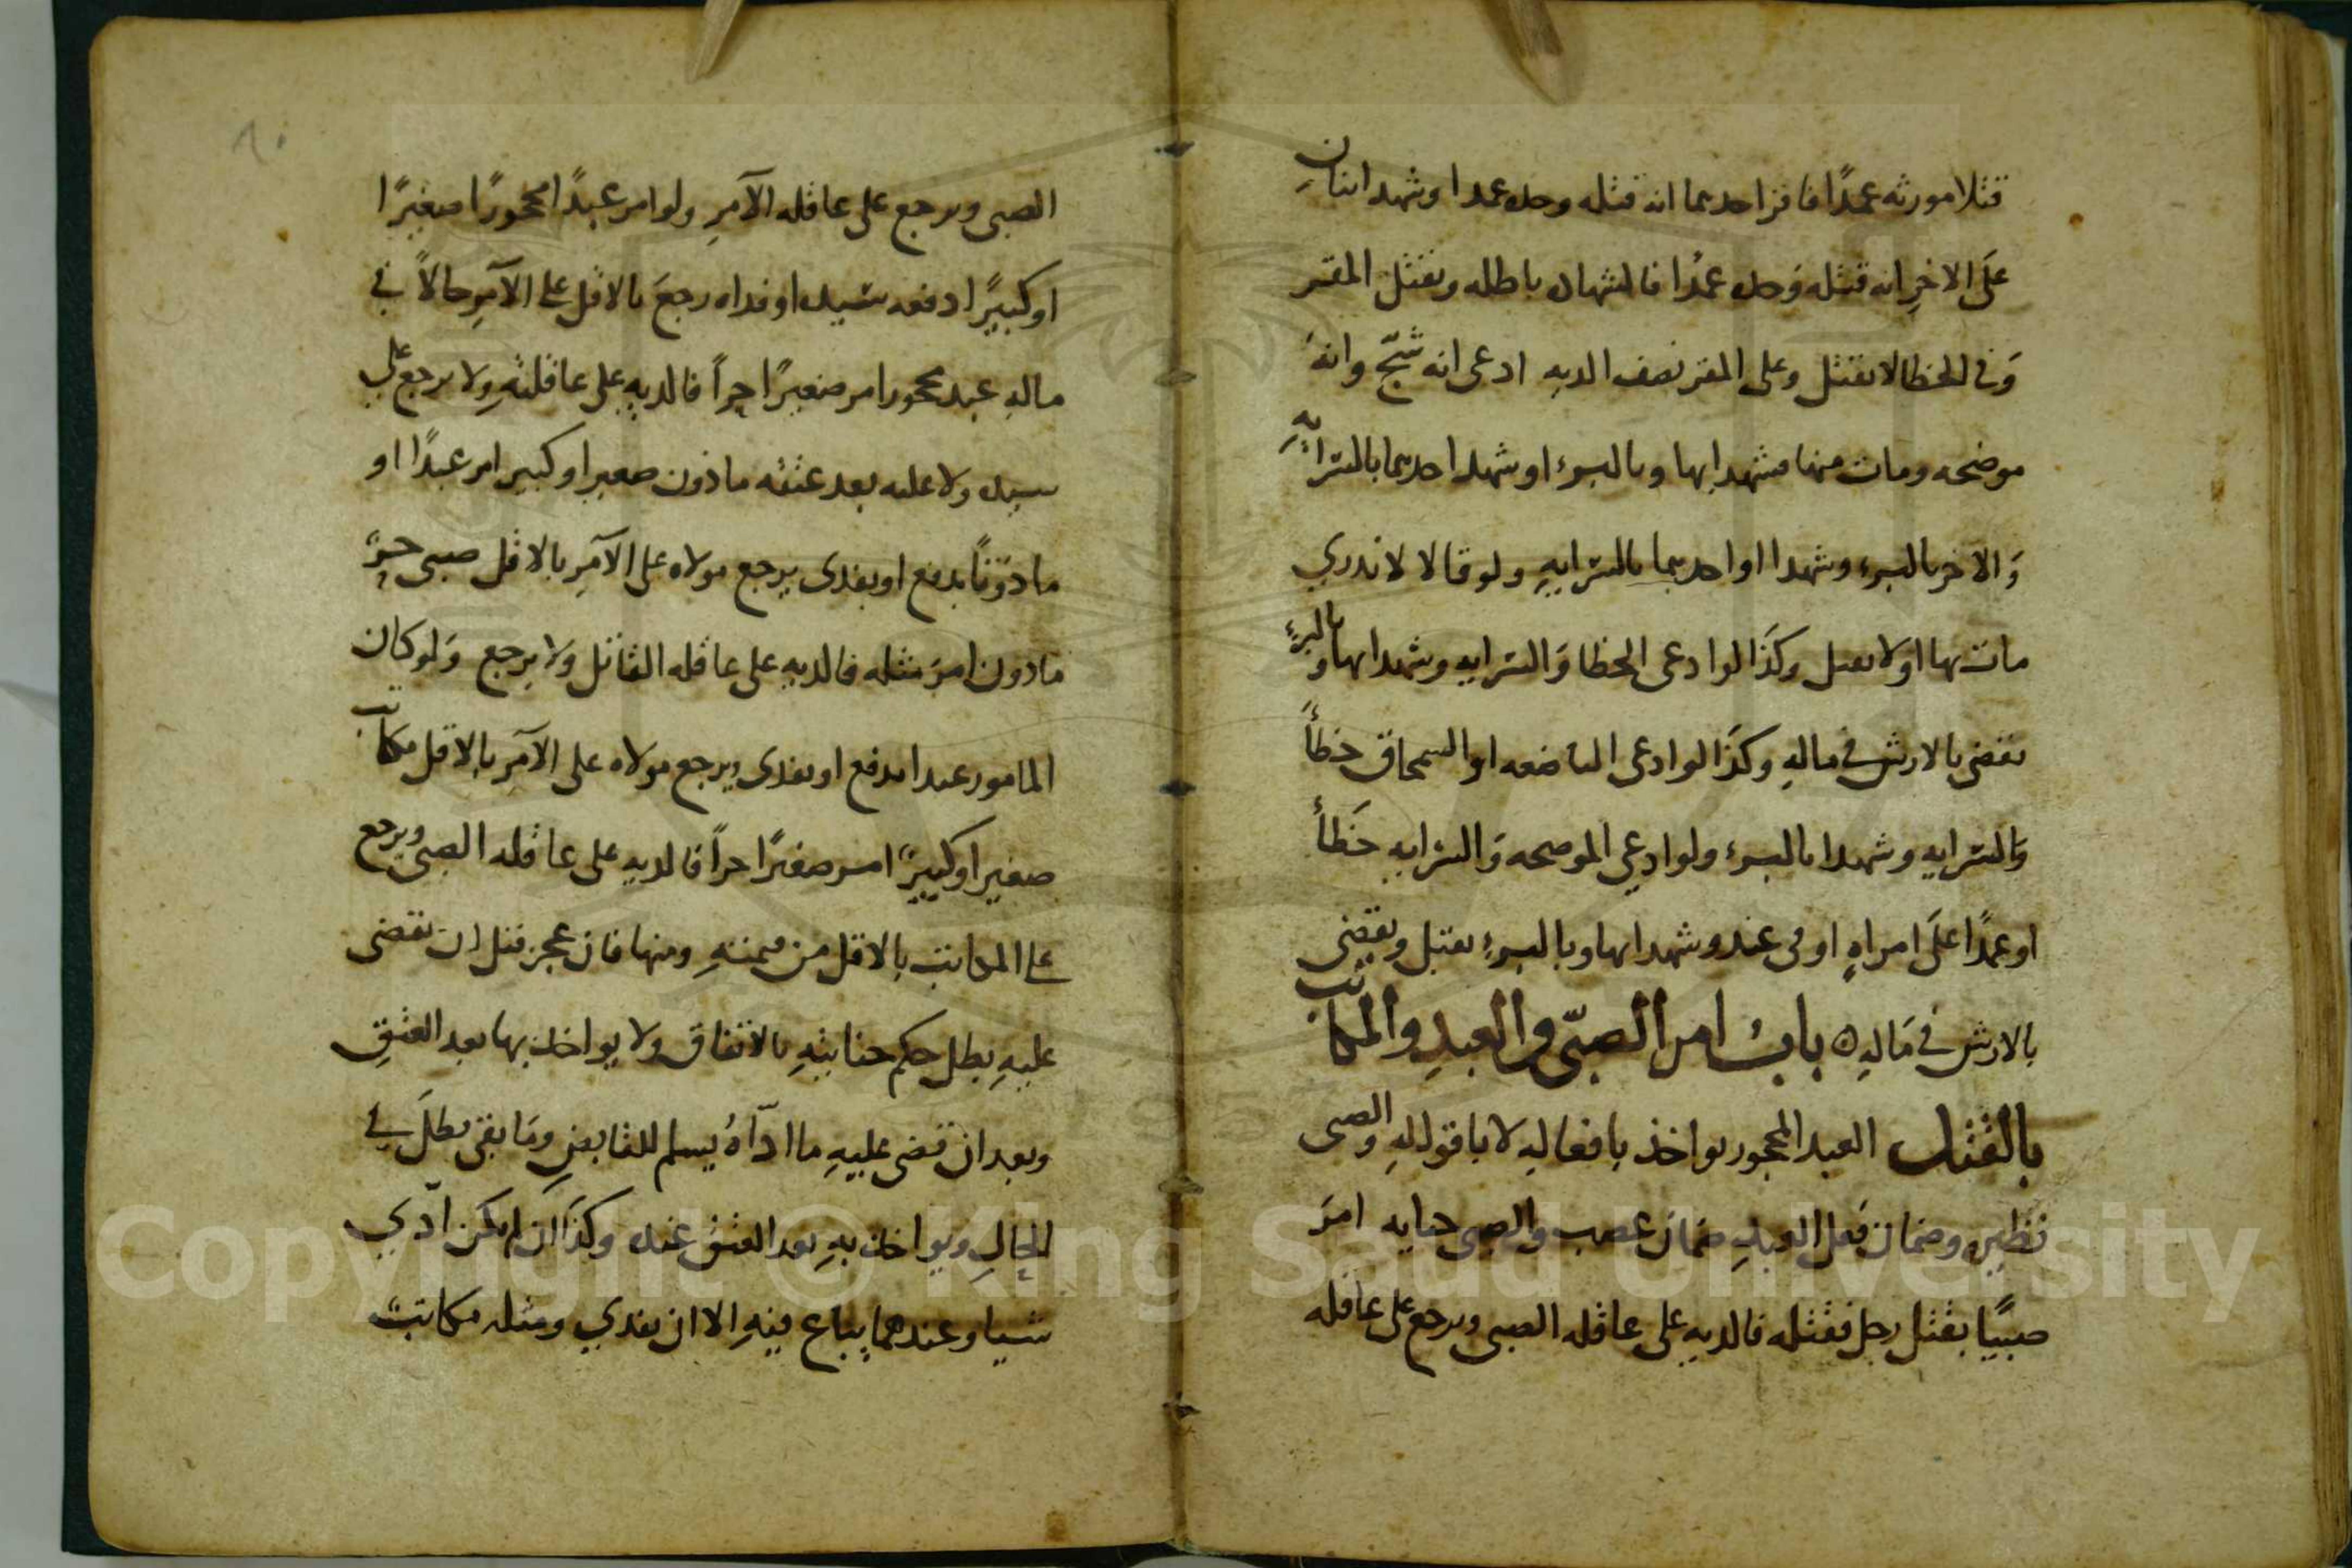 قتلا مورثه عمدًا فاقر احدهما انه قتله وحده عمدا وشهد اثنانِ
علَى الاخرِ انه قتله وَحده عمدًا فالشهاده باطله ويقتل المقر
وَفى الخطا لا يقتل وعلى المقر نصف الديه ادعى انه شُجّ وانهُ
موضحه ومات منها فشهد ابها وبالبرء او شهد احدهما بالسرايهِ
وَالاخر بالبرء وشهدا او احدهما بالسرايهِ ولو قالا لا ندري
مات بها او لا يقبل وكذَا لو ادعى الخطا وَالسرايه وشهدا بها وبالبرءِ
يقضى بالارش فى مالهِ وكذَا لو ادعى الباضعه او السمحاق خطأً
وَالسرايه وشهدا بالبرء ولو ادعى الموضحه وَالسرايهِ خَطأً
او عمدًا علَى امراهٍ او فى عبد وشهدا بها وبالبرءِ يقبل ويقضى
بالارش فى مَالهِ ه بابُ امر الصبّى والعبدِ والمكاتب
بالقتل العبد المحجور يواخذ بافعالهِ لا باقوالهِ والصبى
نظيره وضمان فعل العبدِ ضمان غصب والصبى جنايه امرَ
صبيًا بقتل رجل فقتله فالديه على عاقله الصبى ويرجع على عاقله
٦٠
الصبى ويرجع على عاقله الآمرِ ولو امر عبدًا محجورًا صغيرًا
او كبيرًا دفعه سيده او فداه رجعَ بالاقل على الآمرِ حالاً فى
مالهِ عبد محجور امر صغيرًا حراً فالديهِ على عاقلتهِ ولا يرجع على
سيده ولا عليه بعد عتقه ماذون صغير او كبير امر عبدًا او
ماذونًا يدفع او يفدى يرجع مولاه على الآمرِ بالاقل صبى حرّ
ماذون امرَ مثله فالديهِ على عاقله القاتل ولا يرجع وَلو كان
المامور عبدا يدفع او يفدى ويرجع مولاه على الآمرِ بالاقل مكاتب
صغير او كبيرٌ امر صغيرًا حراً فالديهِ على عاقله الصبى ويرجع
على المكاتب بالاقل من قيمتهِ ومنها فان عجز قبل ان يقضى
عليهِ بطل حكم جنايتهِ بالاتفاق ولا يواخذ بها بعد العتقِ
وبعد ان قضى عليهِ ما ادّاهُ يسلم للقابضِ ومَا بقى بطلَ فى
الحالِ ويواخذ بهِ بعد العتقِ عنده وكذَا ان لم يكن ادّي
شيا وعندهما يباع فيهِ الا ان يفدي ومثله مكاتبٌ
Copyright © King Saud University